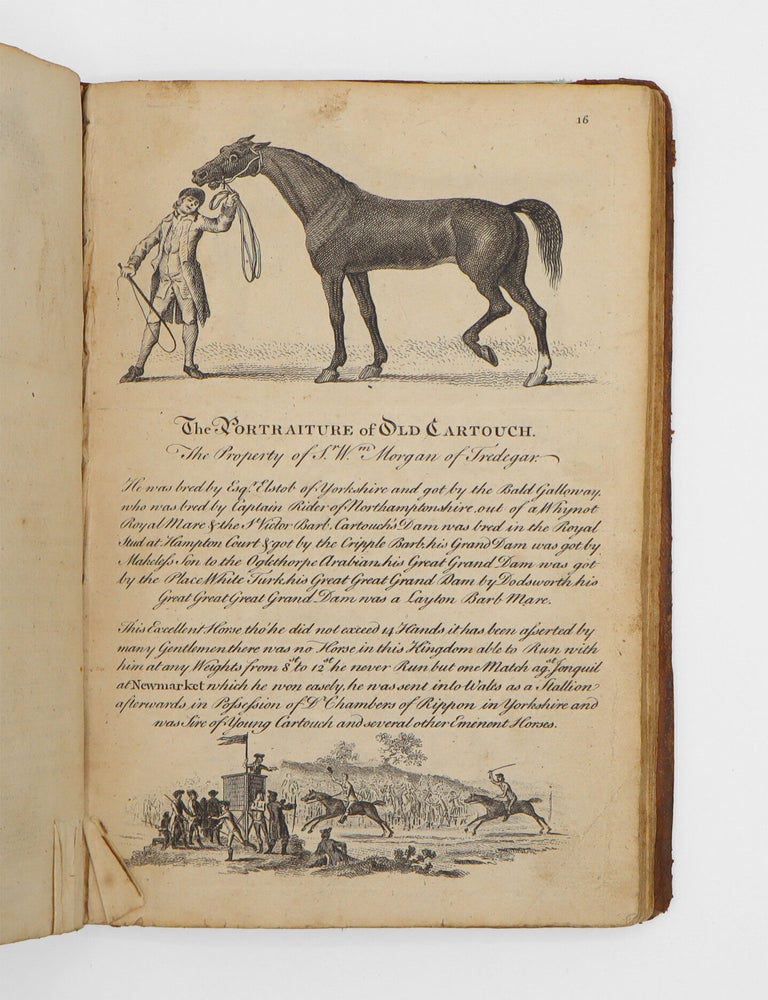 16
The PORTRAITURE of OLD CARTOUCH.
The Property of Sr. Wm. Morgan of Tredegar.
He was bred by Esqr. Elstob of Yorkshire and got by the Bald Galloway,
who was bred by Captain Rider of Northamptonshire, out of a Whynot
Royal Mare & the St Victor Barb. Cartouch's Dam was bred in the Royal
Stud at Hampton Court & got by the Cripple Barb, his Grand Dam was got by
Makeless Son to the Oglethorpe Arabian, his Great Grand Dam was got
by the Place White Turk, his Great Great Grand Dam by Dodsworth, his
Great Great Great Grand Dam was a Layton Barb Mare.
This Excellent Horse tho' he did not exceed 14 Hands it has been asserted by
many Gentlemen there was no Horse in this Kingdom able to Run with
him at any Weights from 8st to 12st he never Run but one Match agst. Jonquil
at Newmarket which he won easely, he was sent into Wales as a Stallion
afterwards in Possession of Dr Chambers of Rippon in Yorkshire and
was Sire of Young Cartouch and several other Eminent Horses.